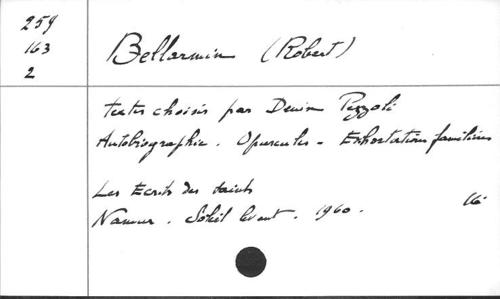 259
163
2
Bellarmin (Robert)
textes choisis par Denise Pezzoli
Autobiographie. Opuscules - Exhortations familières
Les Ecrits des saints
Namur. Soleil levant. 1960.